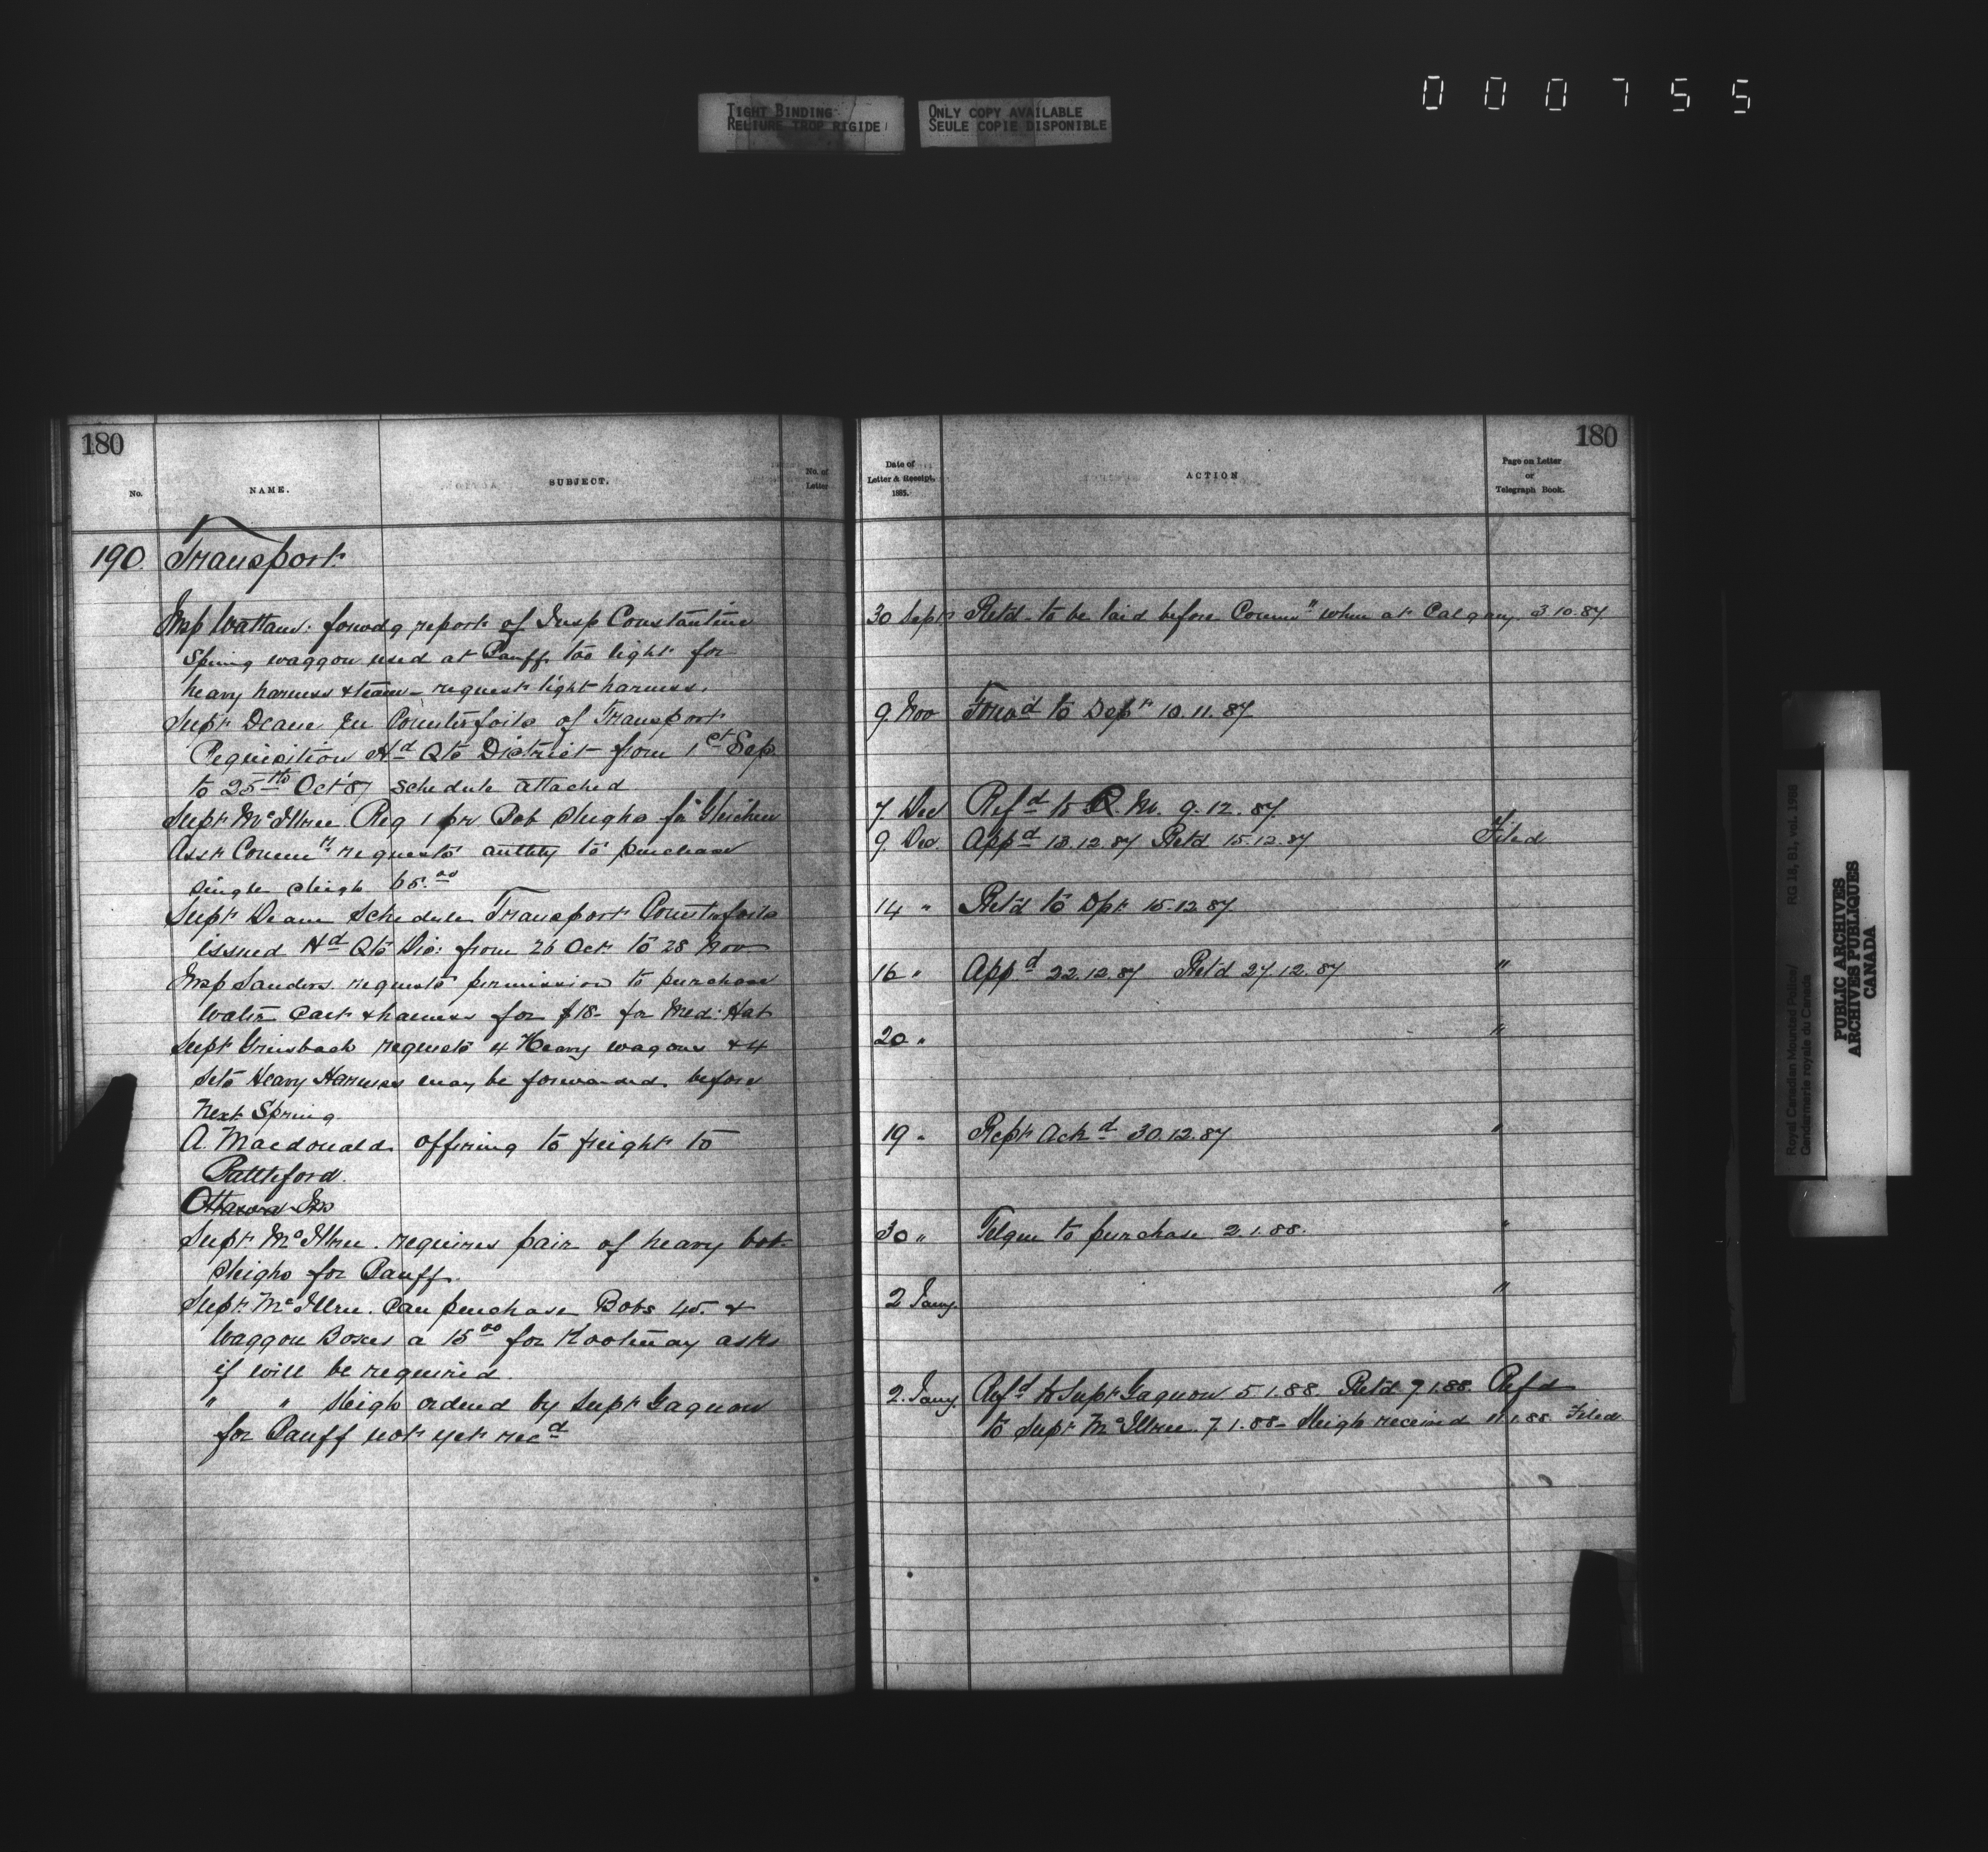 000755
TIGHT BINDING
RELIURE TROP RIGIDE
ONLY COPY AVAILABLE
SEULE COPIE DISPONIBLE
180
No.
NAME.
SUBJECT.
No. of
Letter
190. Transport
Insp Wattam: forwdg report of Insp Constantine
Spring waggon used at Banff too light for
heavy harness & team - request light harness.
Supt Deane Counterfoils of Transport
Requisition Hd Qts District from 1st Sep.
to 25th Oct '87 schedule attached
Supt McIllree Req 1 pr Bob Sleighs for Gleichen
Asst Commr requests authty to purchase
single sleigh 65.00
Supt Deane Schedule Transport Counterfoils
issued Hd Qts Dis: from 26 Oct to 28 Nov
Insp Sanders requests permission to purchase
Water Cart & harness for $18- for Med: Hat
Supt Griesbach requests 4 Heavy wagons & 4
sets Heavy Harness may be forwarded before
Next Spring
A. Macdonald offering to freight to
Battleford.
Ottawa
Supt McIllree. requires pair of heavy bob
Sleighs for Banff.
Supt. McIllree. Can purchase Bobs 45. &
Waggon Boxes a 15 00 for Kootenay asks
if will be required.
" " Sleigh ordered by Supt Gagnon
for Banff not yet recd
180
Date of
Letter & Receipt,
1885.
ACTION
Page on Letter
or
Telegraph Book.
30 Sept Retd. to be laid before Commr when at Calgary. 3.10.87
9 Nov Forwd to Dept 10.11.87
7 Dec Refd to Q. M. 9.12.87.
9 Dec. Appd 13.12.87 Retd 15.12.87 Filed
14 " Retd to Dpt 15.12.87
16 " Appd 22.12.87 Retd 27.12.87 "
20 " "
19 " Rept Ackd 30.12.87 "
30 " Telgm to purchase 2.1.88. "
2 Jany. "
2. Jany. Refd to Supt Gagnon 5.1.88. Retd 7.1.88. Refd
to Supt McIllree. 7.1.88- Sleigh received 11.1.88 Filed
Royal Canadian Mounted Police/
Gendarmerie royale du Canada
RG 18, B1, vol. 1988
PUBLIC ARCHIVES
ARCHIVES PUBLIQUES
CANADA